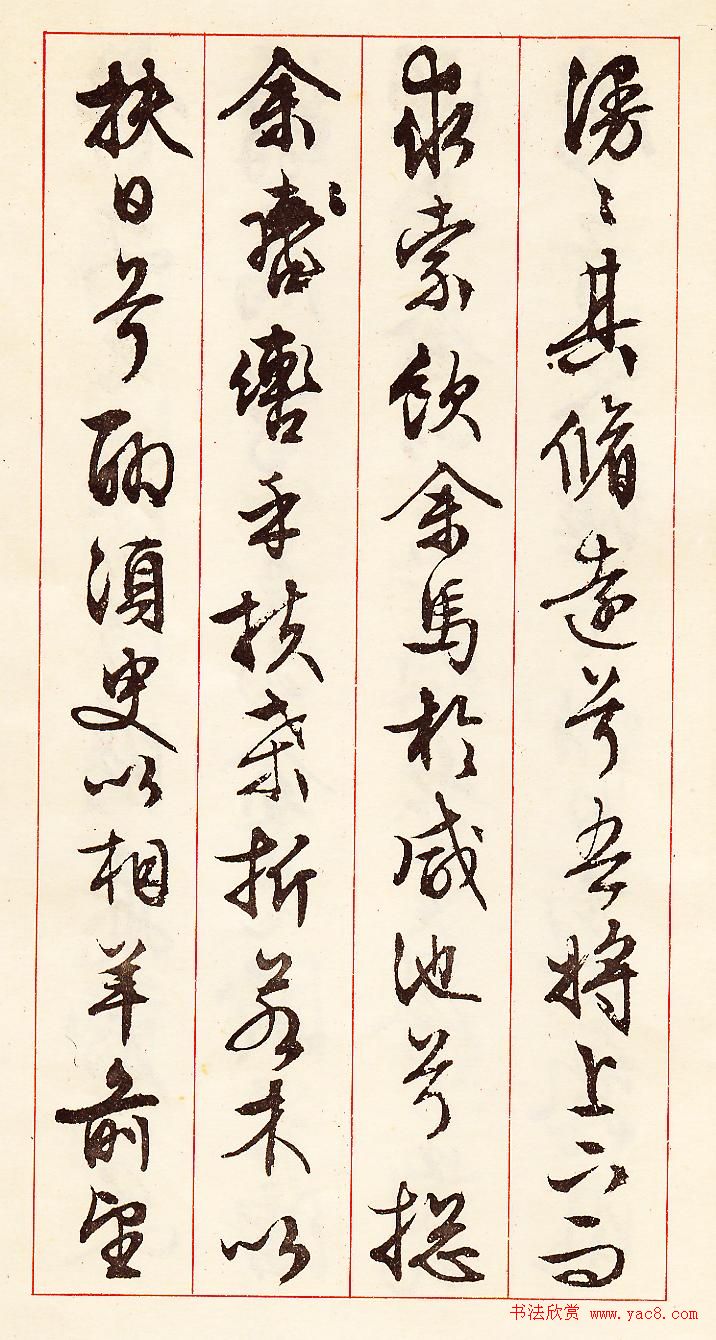 漫々其脩遠兮吾將上下而
求索飲余馬於咸池兮揔
余轡乎扶桑折若木以
扶日兮聊須臾以相羊前望
书法欣赏 www.yac8.com